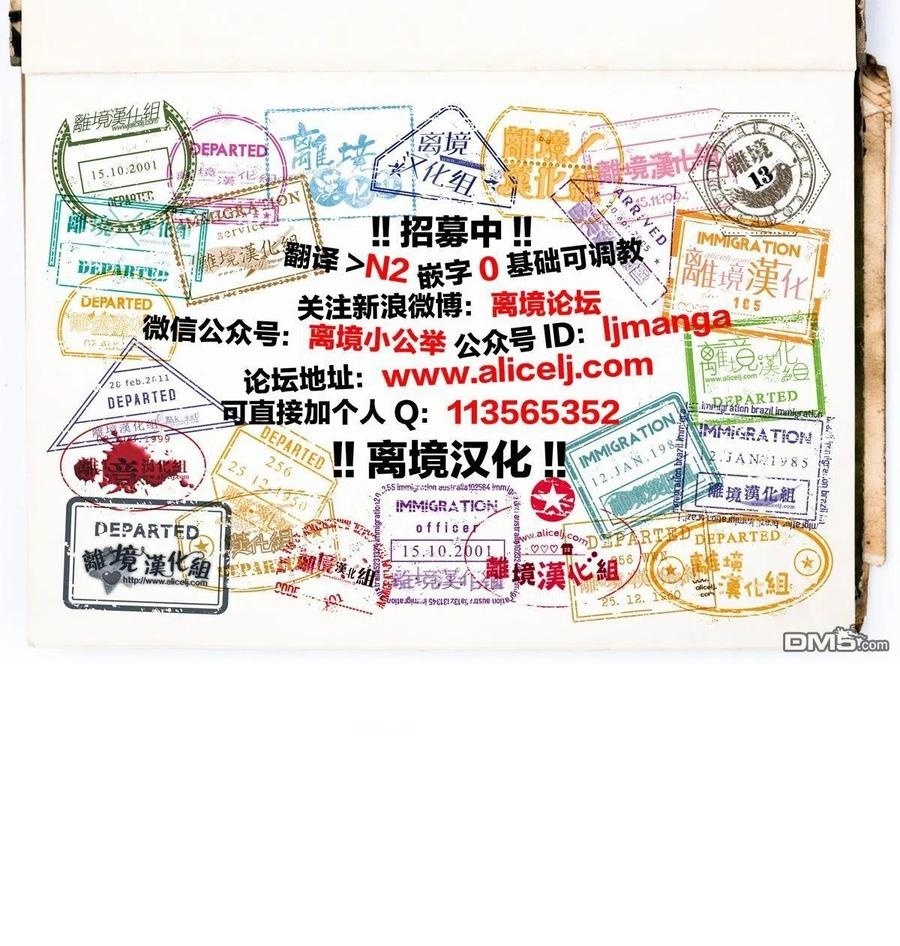 離境漢化組
15.10.2001
DEPARTED
DEPARTED
離境
离境
化组
離境
漢化組
離境漢化組
15.11.199
ARRIVED
離境
13
離境
DEPARTED
IMMIGRATION
service
離境漢化組
!! 招募中 !!
翻译 >N2 嵌字 0 基础可调教
关注新浪微博：离境论坛
微信公众号：离境小公举 公众号 ID：ljmanga
论坛地址：www.alicelj.com
可直接加个人 Q：113565352
!! 离境汉化 !!
IMMIGRATION
離境漢化
DEPARTED
28 feb.2011
DEPARTED
離境漢化組
DEPARTED
離境漢化組
DEPARTED
256
DEPARTED
DEPARTED
離境漢化組
http://www.alicelj.com
離境漢化組
IMMIGRATION
officer
15.10.2001
離境漢化組
www.alicelj.com
離境漢化組
IMMIGRATION
2.JAN.198
immigration brazil immigration
IMMIGRATION
2.JAN.1985
離境漢化組
DEPARTED
25.12.1
離境
漢化組
DM5.com